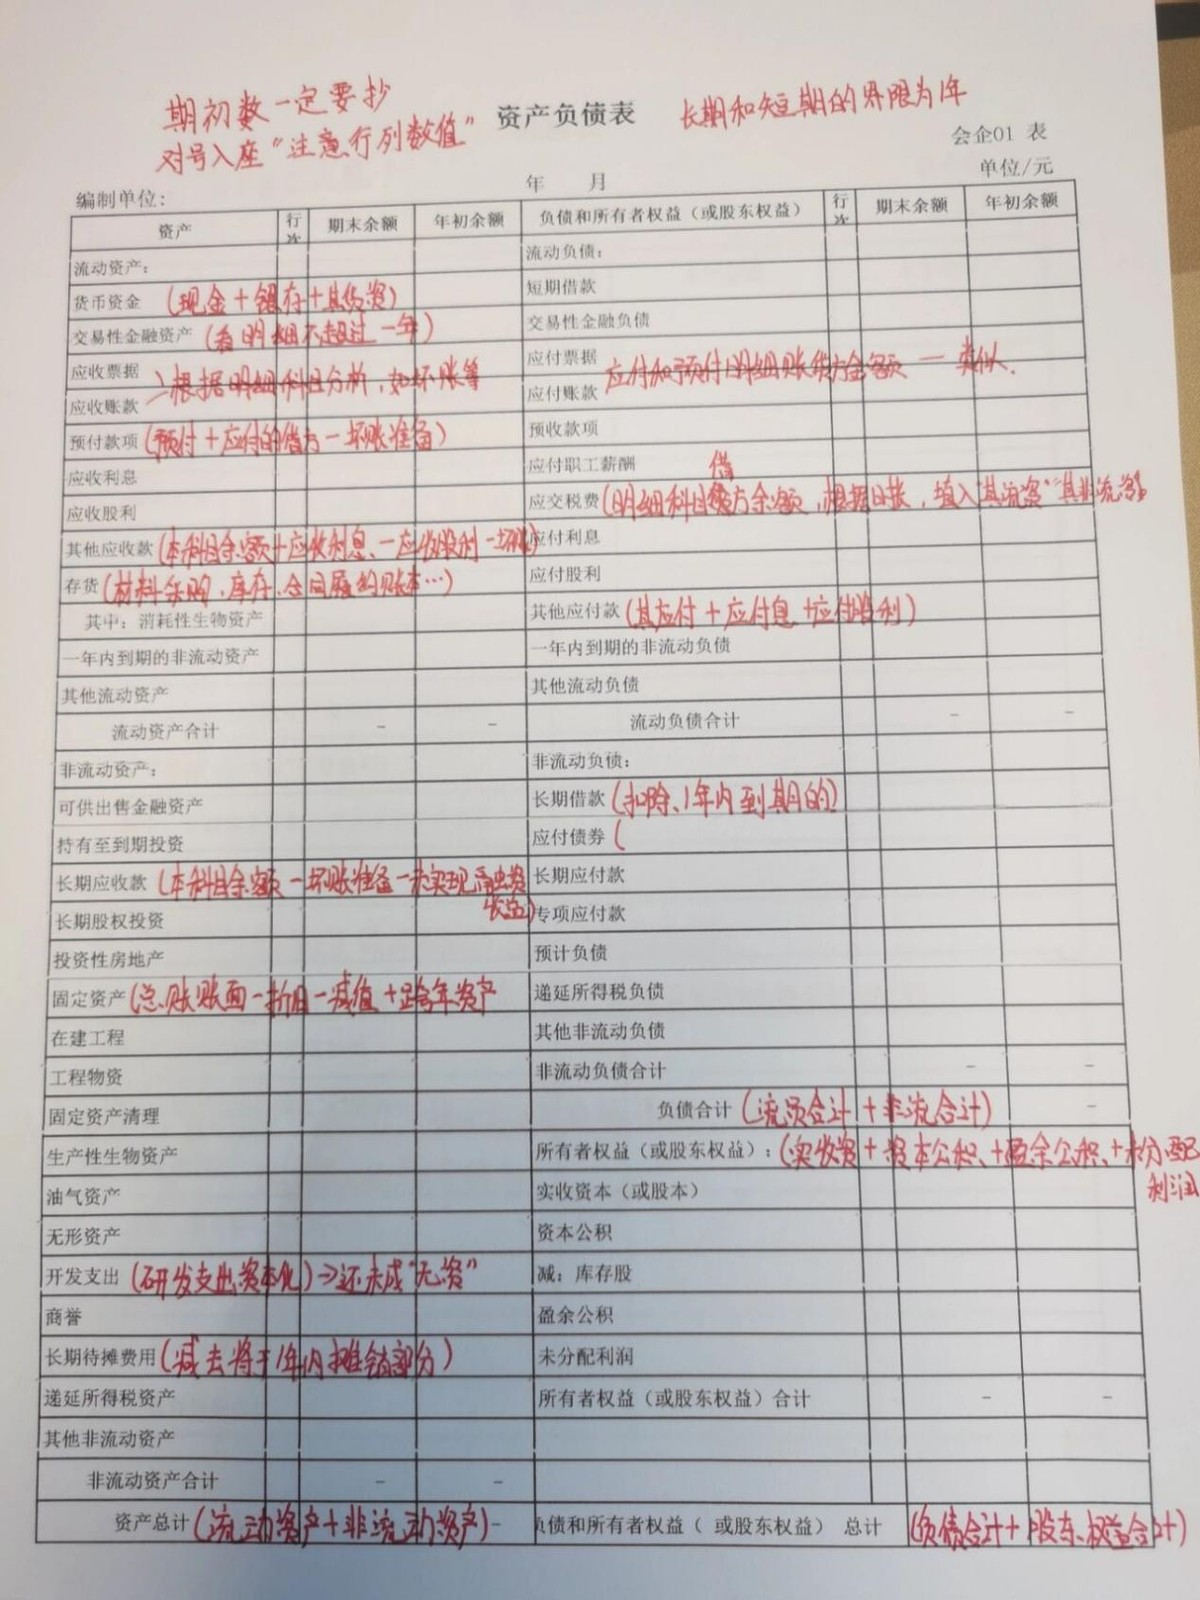 期初数一定要抄
对号入座"注意行列数值"
资产负债表
长期和短期的界限为1年
会企01 表
编制单位:
年 月
单位/元
资产 行次 期末余额 年初余额 负债和所有者权益（或股东权益） 行次 期末余额 年初余额
流动资产: 流动负债:
货币资金 (现金+银存+其货资) 短期借款
交易性金融资产 (看明细不超过一年) 交易性金融负债
应收票据 应付票据
>根据明细科目分析，如坏账等 应付和预付明细账贷方金额 一 类似.
应收账款 应付账款
预付款项 (预付+应付的借方-坏账准备) 预收款项
应收利息 应付职工薪酬
借
应收股利 应交税费 (明细科目方余额，根据，填入"其流资""其非流资"
其他应收款 (本科目余额+应收利息、一应收股利-坏账) 应付利息
存货 (材料采购、库存、合同履约成本…) 应付股利
其中: 消耗性生物资产 其他应付款 (其应付+应付息+应付股利)
一年内到期的非流动资产 一年内到期的非流动负债
其他流动资产 其他流动负债
流动资产合计 - - 流动负债合计 - -
非流动资产: 非流动负债:
可供出售金融资产 长期借款 (扣除、1年内到期的)
持有至到期投资 应付债券 (
长期应收款 (本科目余额-坏账准备-未实现融资 长期应付款
收益)
长期股权投资 专项应付款
投资性房地产 预计负债
固定资产 (总账账面-折旧-减值+跨年资产 递延所得税负债
在建工程 其他非流动负债
工程物资 非流动负债合计 - -
固定资产清理 负债合计 (流负合计+非流合计) -
生产性生物资产 所有者权益（或股东权益）: (实收资+资本公积、+盈余公积、+未分配
利润
油气资产 实收资本（或股本）
无形资产 资本公积
开发支出 (研发支出资本化)→还未成"无资" 减: 库存股
商誉 盈余公积
长期待摊费用 (减去将于1年内摊销部分) 未分配利润
递延所得税资产 所有者权益（或股东权益）合计 - -
其他非流动资产
非流动资产合计 - -
资产总计 (流动资产+非流动资产) - 负债和所有者权益（ 或股东权益） 总计 (负债合计+股东、权益合计)